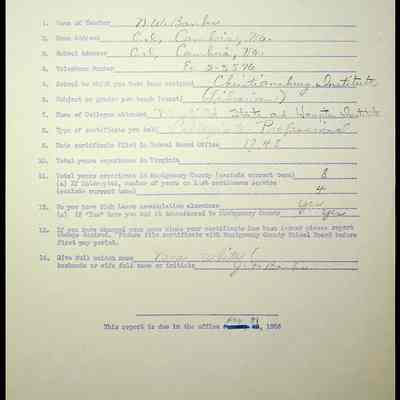 1. Name of Teacher
2. Home Address C.I., Cambria, Va.
3. School Address C.I., Cambria, Va.
4. Telephone Number Ev 2-2576
5. School to which you have been assigned Christiansburg Institute
6. Subject or grades you teach (exact) (Librarian)
7. Name of Colleges attended State and Hampton Institute
8. Type of certificate you hold Collegiate Professional
9. Date certificate filed in School Board Office 1948
10. Total years experience in Virginia
11. Total years experience in Montgomery County (exclude current term) 8
(a) If interrupted, number of years on last continuous service
(exclude current term) 4
12. Do you have Sick Leave accumulation elsewhere Yes
(a) If "Yes" have you had it transferred to Montgomery County Yes
13. If you have changed your name since your certificate has been issued please report
change desired. Please file certificate with Montgomery County School Board before
first pay period.
14. Give full maiden name
husbands or wife full name or initials
This report is due in the office , 1956